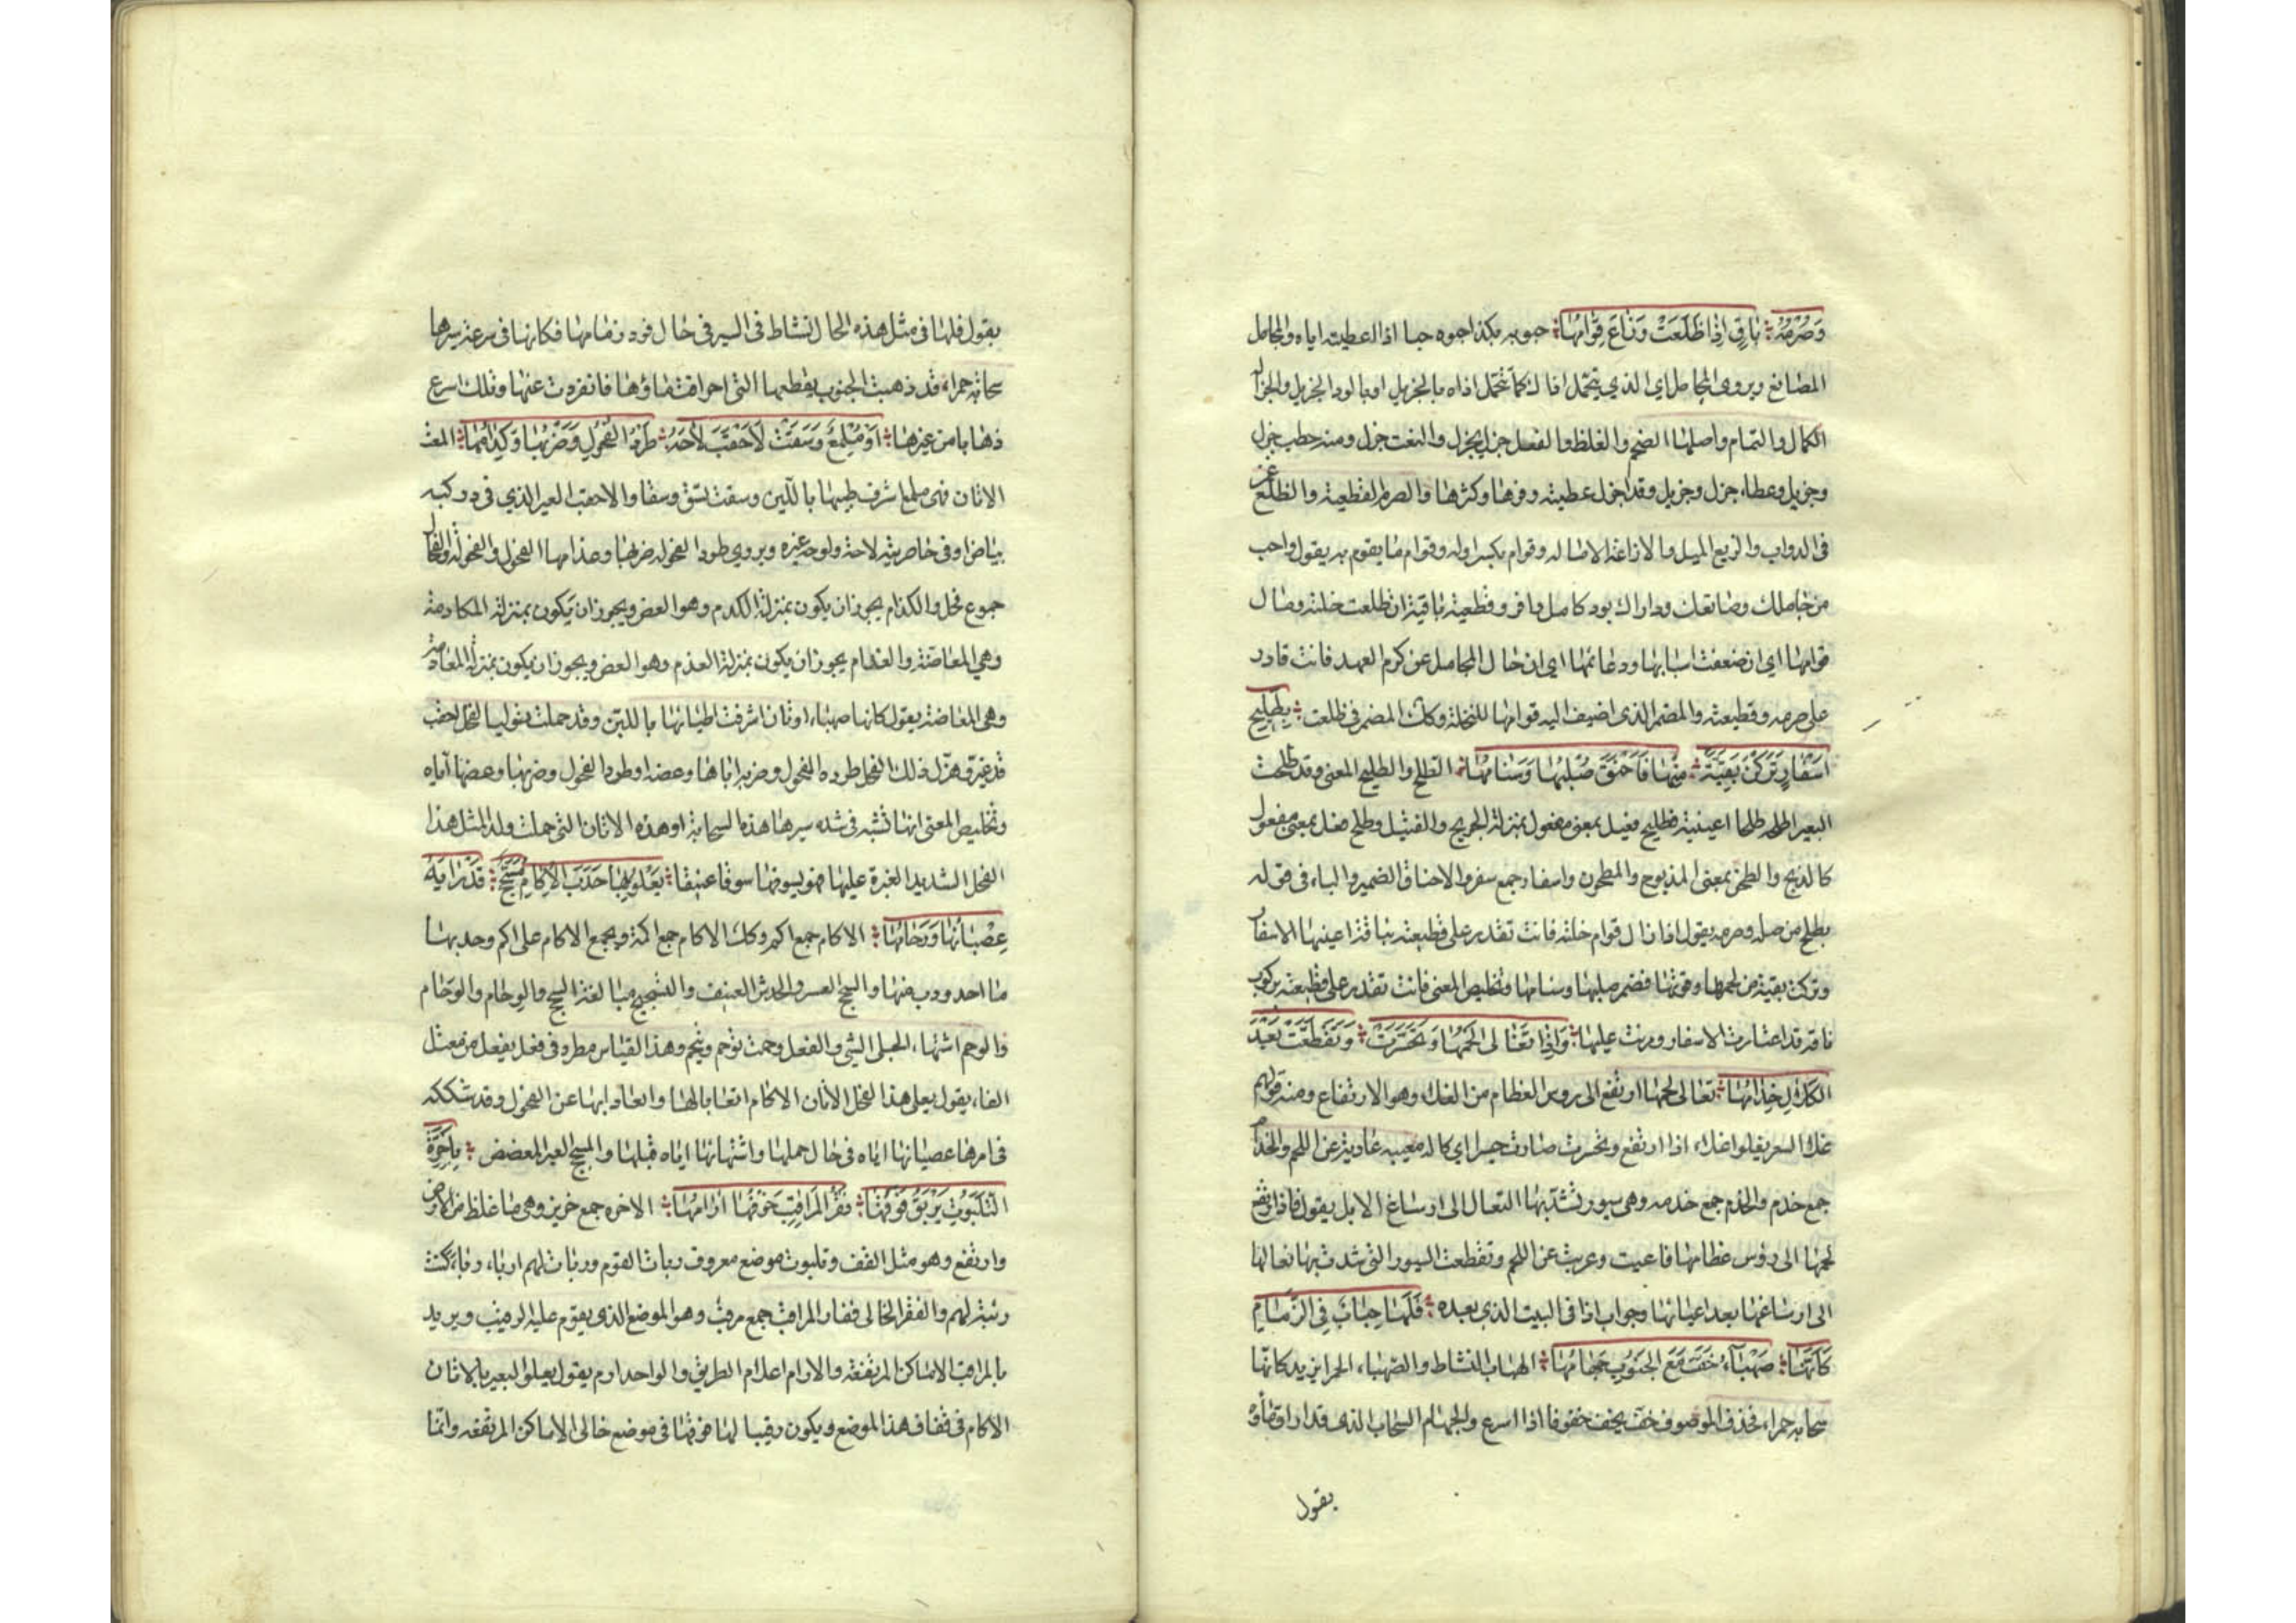 وَصُرْمُهُ ؛ بَاقٍ اِذَا ظَلَعَتْ وَزَاغَ قِوَامُهَا ؛ حبوبه بكذا احبوه حبا اذا اعطيته اياه والمجامل
المصانع ويروى المحامل اي الذي يتحمل اذاك كما تتحمل اذاه بالجزيل اي بالود الجزيل والجزالة
الكمال والتمام واصلها الضخم والغلظ والفعل جزل يجزل والنعت جزل ومنه حطب جزل
وجزيل وعطاء جزل وجزيل وقد اجزل عطيته وفرها وكثرها والصرم القطيعة والظلع غمز
فى الدواب والزيغ الميل والازاغة الامالة وقوام بكسر اوله وقوام ما يقوم به يقول واحب
من جاملك وصانعك وداراك بود كامل وافر وقطيعته باقية ان ظلعت خلته ومال
قوامها اي ان ضعفت اسبابها ودعائمها اي ان حال المجامل عن كرم العهد فانت قادر
على صرمه وقطيعته والمضمر الذى اضيف اليه قوامها للخلة وكذلك المضمر فى ظلعت ؛ بِطَلِيحِ
اَسْفَارٍ تَرَكْنَ بَقِيَّةً ؛ مِنْهَا فَاَحْنَقَ صُلْبُهَا وَسَنَامُهَا ؛ الطلح والطليح المعى وقد طلحت
البعير اطلحه طلحا اعييته فطليح فعيل بمعنى مفعول بمنزلة الجريح والقتيل وطلح فعل بمعنى مفعول
كالذبح والطحن بمعنى المذبوح والمطحون واسفار جمع سفر والاحناق الضمير والباء فى قوله
بطليح من صله وصرمه يقول اذا زال قوام خلته فانت تقدر على قطيعته بناقة اعيتها الاسفار
وتركت بقية من لحمها وقوتها فضمر صلبها وسنامها وتخليص المعنى فانت تقدر على قطيعته بركوب
ناقة قد اعتادت الاسفار ومرنت عليها ؛ وَاِذَا تَغَالى لَحْمُهَا وَتَحَسَّرَتْ ؛ وَتَقَطَّعَتْ بَعْدَ
الكَلَالِ خِدَامُهَا ؛ تغالى لحمها ارتفع الى روس العظام من الغلاء وهو الارتفاع ومنه قولهم
غلا السعر يغلوا غلاء اذا ارتفع وتحسرت صارت حسيرا اي كالة معيبه عارية عن اللحم والخدام
جمع خدم والخدم جمع خدمه وهى سيور تشد بها النعال الى ارساغ الابل يقول فاذا ارتفع
لحمها الى رؤس عظامها فاعيت وعريت عن اللحم وتقطعت السيور التى شدت بها نعالها
الى ارساغها بعد اعيائها وجواب اذا فى البيت الذى بعده ؛ فَلَهَا هِبَابٌ فِي الزِّمَامِ
كَاَنَّهَا ؛ صَهْبَاءُ خَفَّ مَعَ الجَنُوبِ جَهَامُهَا ؛ الهباب النشاط والصهباء الحمراء يريد كانها
سحابة حمراء فحذف الموصوف خف يخف خفوفا اذا اسرع والجهام السحاب الذى قد اراق ماؤه
يقول
يقول فلها فى مثل هذه الحال النشاط فى السير فى حال قود زمامها فكانها فى سرعة سيرها
سحابة حمراء قد ذهبت الجنوب بقطعها التى اهراقت ماؤها فانفردت عنها وتلك اسرع
ذهابا من غيرها ؛ اَوْ مُلْمِعٌ وَسَقَتْ لِاَحْقَبَ لَاحَهُ ؛ طَرْدُ الفُحُولِ وَضَرْبُهَا وَكِدَامُهَا ؛ المعت
الاتان فهى ملمع اشرف طبيها باللبن وسقت تسق وسقا والاحقب العير الذي فى وركيه
بياض او فى خاصرتيه لاحه ولوحه غيره ويروي طرد الفحولة ضربها وعذامها الفحول والفحولة والفحال
جموع فحل والكدام يجوز ان يكون بمنزلة الكدم وهو العض ويجوز ان يكون بمنزلة المكادمة
وهي المعاضة والعذام يجوز ان يكون بمنزلة العذم وهو العض ويجوز ان يكون بمنزلة المعاذمة
وهى المعاضة يقول كانها صهباء او اتان اشرفت اطباؤها باللبن وقد حملت تواليا لفحل احقب
قد غير وهزل ذلك الفحل طرده الفحول وضربه اياها وعضه او طرد الفحول وضربها وعضها اياه
وتخليص المعنى انها تشبه فى شدة سيرها هذه السحابة او هذه الاتان التى حملت ولد المثل هذا
الفحل الشديد الغيرة عليها فهو يسوقها سوقا عنيفا ؛ يَعْلُو بِهَا حَدَبَ الْاِكَامِ مُسَحَّجٌ ؛ قَدْ رَابَهُ
عِصْيَانُهَا وَوَحَامُهَا ؛ الاكام جمع اكم وكذلك الاكام جمع اكمة ويجمع الاكام على اكم وحدبها
ما احدودب منها والسحج القسر والخدش العنيف والتسحيج مبالغة السحج والوحام والوحام
والوحم اشتهاء الحبلى الشي والفعل وحمت توحم وتيحم وهذا القياس مطرد فى فعل يفعل من معتل
الفاء يقول يعلى هذا الفحل الاتان الاكام اتعابا لها وابعادا بها عن الفحول وقد شككه
فى امرها عصيانها اياه فى حال حملها واشتهائها اياه قبلها والمسحج العير المعضض ؛ بِاَحِزَّةِ
الثَّلَبُوتِ يَرْبَؤُ فَوْقَهَا ؛ قَفْرَ الْمَرَاقِبِ خَوْفُهَا اٰرَامُهَا ؛ الاحزة جمع حزيز وهى ما غلظ من الارض
وارتفع وهو مثل القف وثلبوت موضع معروف ربات القوم وربات لهم اربا وباء كنت
ربئة لهم والقفر الخالى قفار والمراقب جمع مرقب وهو الموضع الذى يقوم عليه الرقيب ويريد
بالمراقب الاماكن المرتفعة والارام اعلام الطريق والواحد ارم يقول يعلو العير بالاتان
الاكام فى قفاف هذا الموضع ويكون رقيبا لها فوقها فى موضع خالى الاماكن المرتفعة وانما